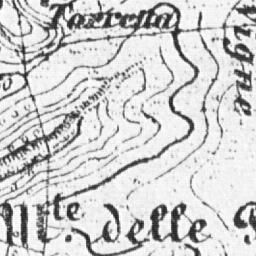 Torretta
Vigne
M.te delle